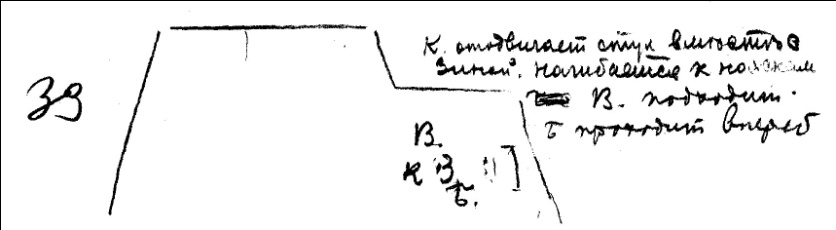 К. отодвигает стул вместе с
Зиной. нагибается к ножкам
В. подходит.
Б проходит вперед
39
В.
К З
Б.